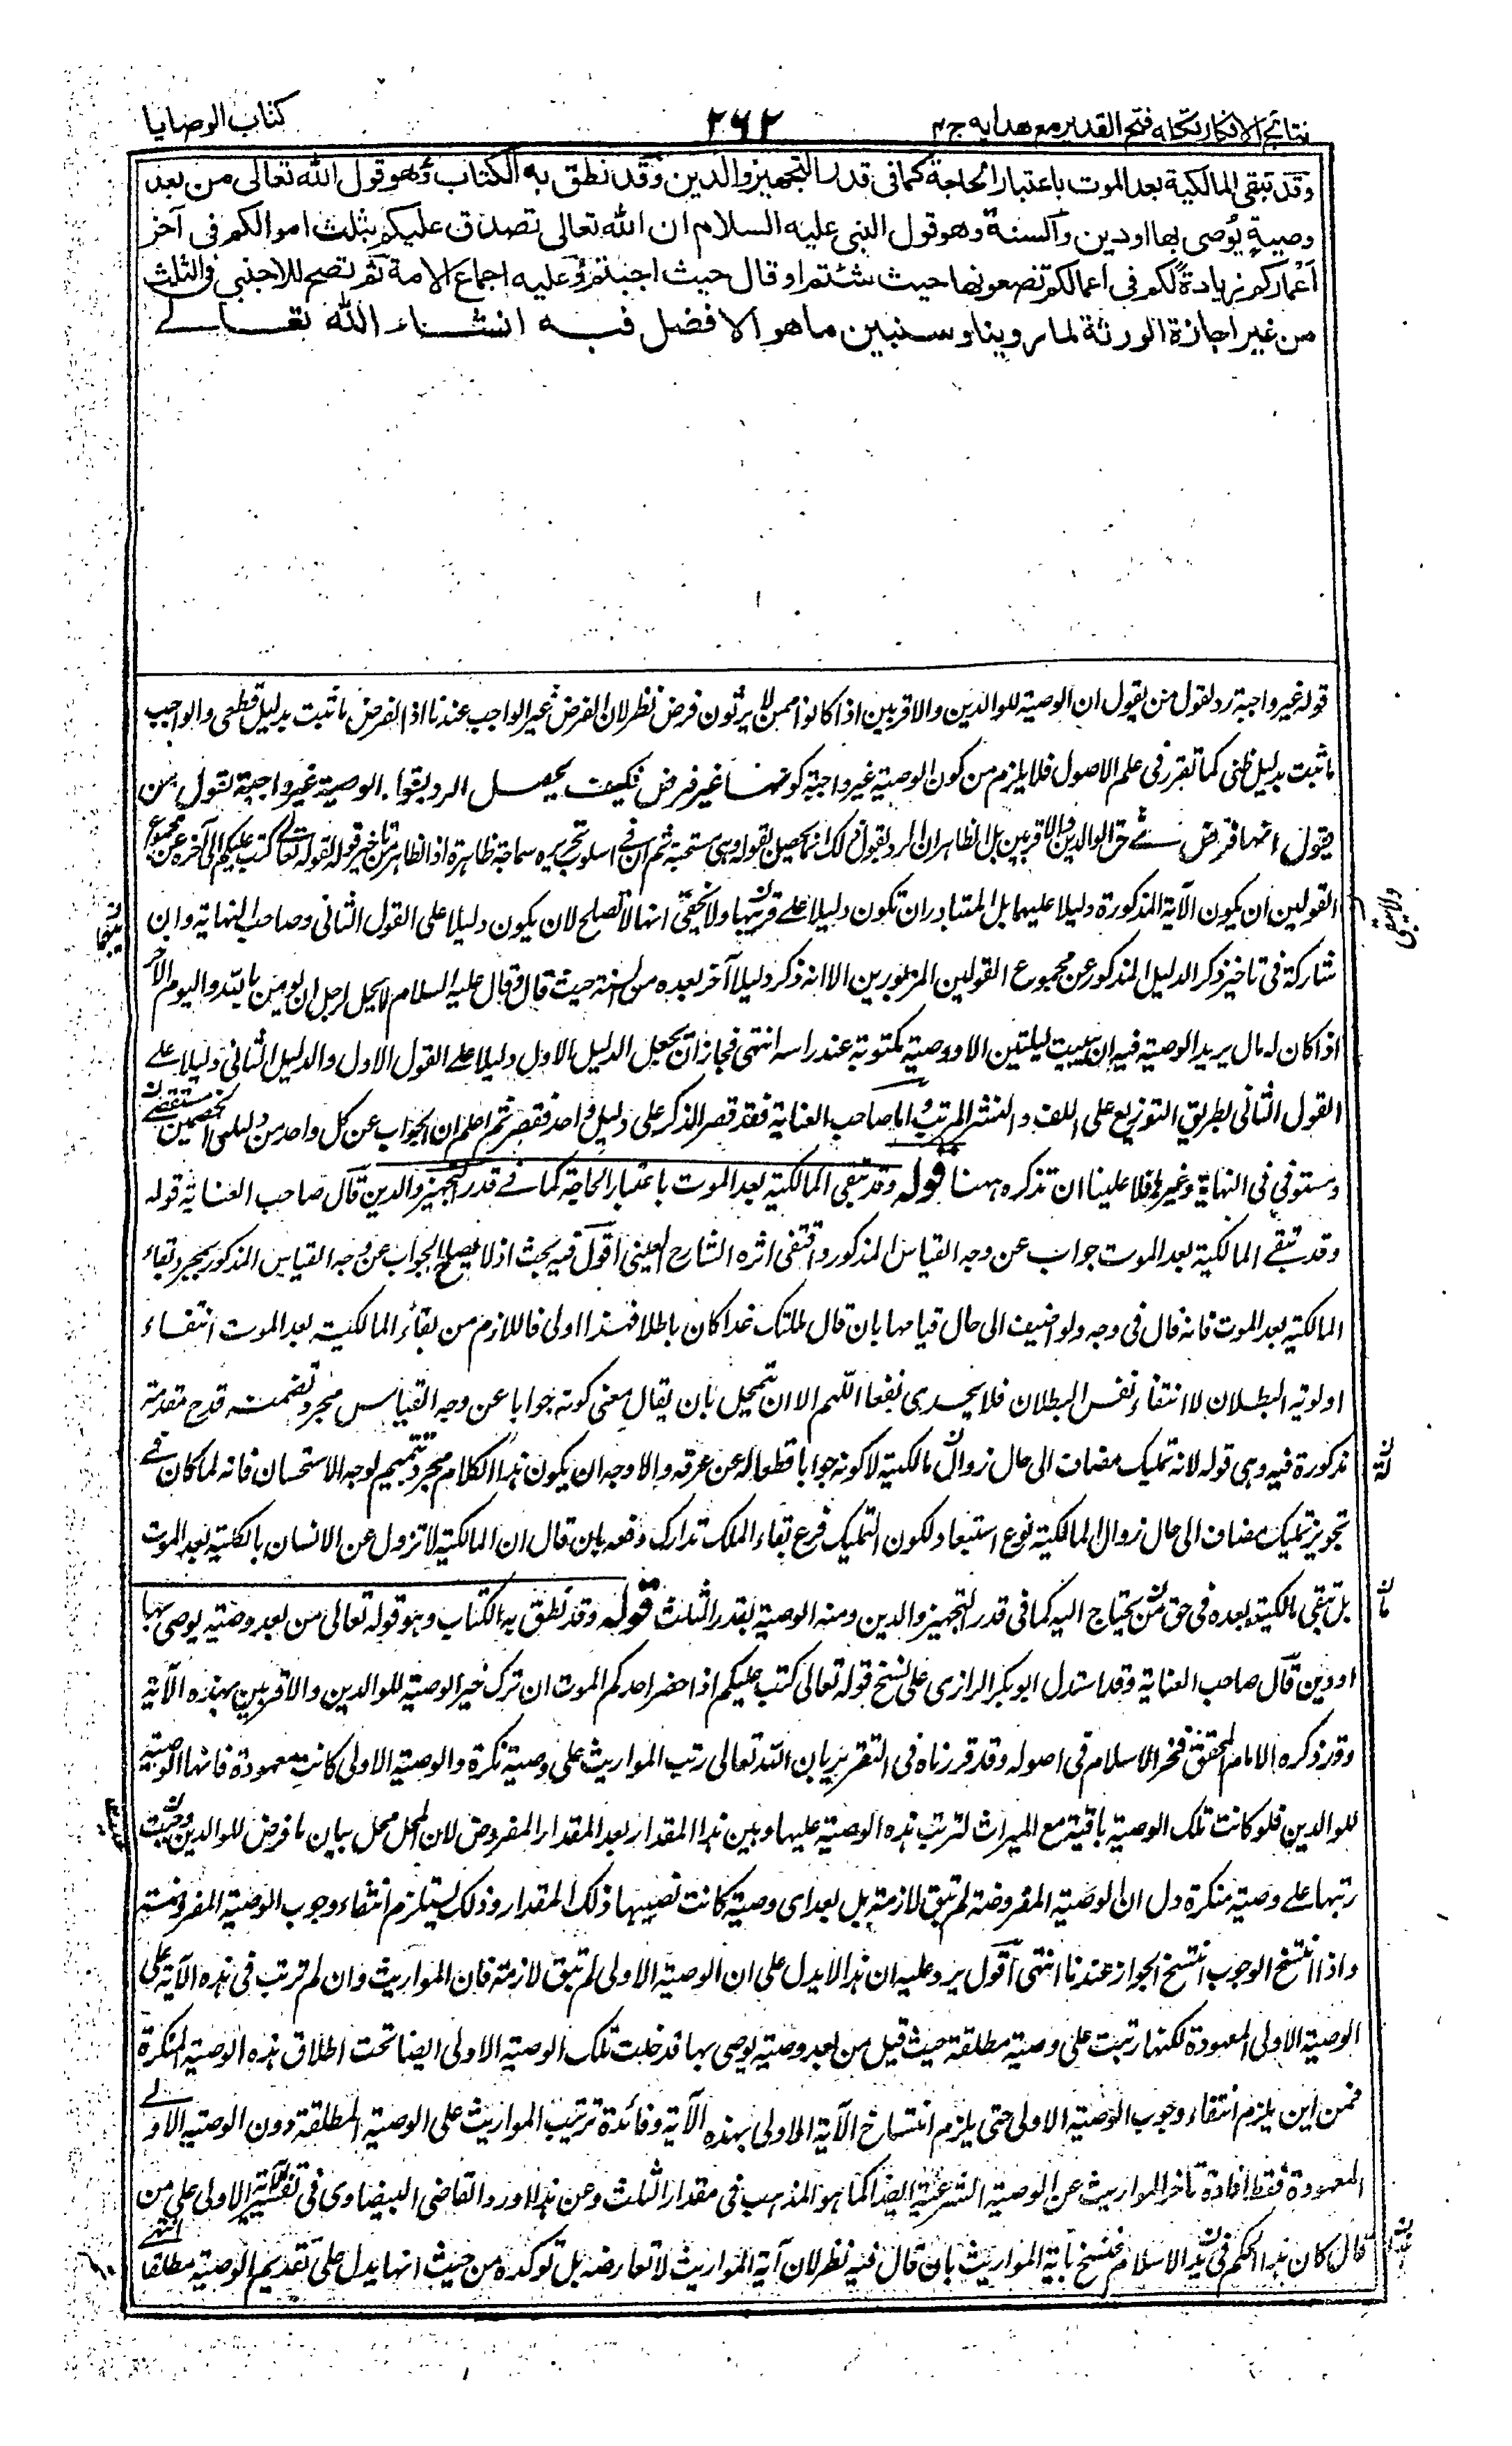 نتائج الافكار تكمله فتح القدير مع هدايه ج ٤
٢٦٢
كتاب الوصايا
وقد تبقى المالكية بعد الموت باعتبار الحاجة كما فى قدر التجهيز والدين وقد نطق به الكتاب وهو قول الله تعالى من بعد
وصية يُوصى بها اودين والسنة وهو قول النبى عليه السلام ان الله تعالى تصدق عليكم بثلث اموالكم فى آخر
اعماركم زيادة لكم فى اعمالكم تضعونها حيث شئتم او قال حيث احببتم وعليه اجماع الامة ثم تصح للاجنبي فى الثلث
من غير اجازة الورثة لما روينا وسنبين ما هو الافضل فيه انشاء الله تعالے
قوله غير واجبة رد لقول من يقول ان الوصية للوالدين والاقربين اذا كانوا ممن لا يرثون فرض نظر لان الفرض غير الواجب عندنا اذ الفرض ما ثبت بدليل قطعى والواجب
ما ثبت بدليل ظنى كما تقرر فى علم الاصول فلا يلزم من كون الوصية غير واجبة كونها غير فرض فكيف يحصل الرد بقوله الوصية غير واجبة لقول من
يقول انها فرض فے حق الوالدين والاقربين بل الظاهر ان الرد لقول ذلك انما يحصل بقوله وهى مستحبة ثم ان فے اسلوب تحريره سماجة ظاهرة اذ الظاهر من تاخير قوله لقوله تعالے كتب عليكم الى آخره عن مجموع
القولين ان يكون الآية المذكورة دليلا عليهما بل المتبادر ان تكون دليلا علے قريبها ولا يخفى انها لا تصلح لان يكون دليلا على القول الثانى وصاحب النهاية وان
شاركه فى تاخير ذكر الدليل المذكور عن مجموع القولين المزبورين الا انه ذكر دليلا آخر بعده من السنة حيث قال وقال عليه السلام لا يحل لرجل ان يومن بالله واليوم الآخر
اذا كان له مال يريد الوصية فيه ان يبيت ليلتين الا ووصيته مكتوبة عند راسه انتهى فجاز ان يجعل الدليل الاول دليلا علے القول الاول والدليل الثانى دليلا علے
القول الثانى بطريق التوزيع على اللف والنشر المرتب واما صاحب العناية فقد قصر الذكر على دليل واحد فقصر ثم اعلم ان الجواب عن كل واحد من دليلى الخصمين مستقصے
ومستوفى فى النهاية وغيرها فلا علينا ان نذكره ههنا قوله وقد تبقى المالكية بعد الموت باعتبار الحاجة كما فے قدر التجهيز والدين قال صاحب العناية قوله
وقد تبقے المالكية بعد الموت جواب عن وجه القياس المذكور واقتفى اثره الشارح العينى اقول فيه بحث اذ لا يصلح الجواب عن وجه القياس المذكور بمجرد بقاء
المالكية بعد الموت فانه قال فى وجه ولو اضيف الى حال قيامها بان قال ملكتك غدا كان باطلا فهذا اولى فاللازم من بقاء المالكية بعد الموت انتفاء
اولوية البطلان لا انتفاء نفس البطلان فلا يجدى نفعا اللهم الا ان يتمحل بان يقال معنى كونه جوابا عن وجه القياس مجرد تضمنه قدح مقدمة
مذكورة فيه وهى قوله لانه تمليك مضاف الى حال زوال مالكيته لا كونه جوابا قطعا له عن عرقه والاوجه ان يكون هذا الكلام مجرد تتميم لوجه الاستحسان فانه لما كان فے
تجويز تمليك مضاف الى حال زوال المالكية نوع استبعاد لكون التمليك فرع بقاء الملك تدارك دفعه بان قال ان المالكية لا تزول عن الانسان بالكلية بعد الموت
بل تبقى مالكيته بعده فى حق ما يحتاج اليه كما فى قدر التجهيز والدين ومنه الوصية بقدر الثلث قوله وقد نطق به الكتاب وهو قوله تعالى من بعد وصية يوصى بها
او دين قال صاحب العناية وقد استدل ابو بكر الرازى على نسخ قوله تعالى كتب عليكم اذا حضر احدكم الموت ان ترك خير الوصية للوالدين والاقربين بهذه الآية
وقرر ذكره الامام المحقق فخر الاسلام فى اصوله وقد قررناه فى التقرير بان الله تعالى رتب المواريث على وصية نكرة والوصية الاولى كانت معهودة فانها الوصية
للوالدين فلو كانت تلك الوصية باقية مع الميراث لترتب هذه الوصية عليها وبين هذا المقدار بعد المقدار المفروض لان المحل محل بيان ما فرض للوالدين وحيث
رتبها علے وصية منكرة دل ان الوصية المفروضة لم تبق لازمة بل بعد اى وصية كانت نصيبها ذلك المقدار وذلك يستلزم انتفاء وجوب الوصية المفروضة
واذا انتسخ الوجوب انتسخ الجواز عندنا انتهى اقول يرد عليه ان هذا لا يدل على ان الوصية الاولى لم تبق لازمة فان المواريث وان لم ترتب فى هذه الآية على
الوصية الاولى المعهودة لكنها رتبت على وصية مطلقة حيث قيل من بعد وصية يوصى بها فدخلت تلك الوصية الاولى ايضا تحت اطلاق هذه الوصية المنكرة
فمن اين يلزم انتفاء وجوب الوصية الاولى حتى يلزم انتساخ الآية الاولى بهذه الآية وفائدة ترتيب المواريث على الوصية المطلقة دون الوصية الاولے
المعهودة فقط افادة تاخر المواريث عن الوصية الشرعية ايضا كما هو المذهب فى مقدار الثلث وعن هذا اورد القاضى البيضاوى فى تفسير الآية الاولى على من
قال كان هذا الحكم فى بدء الاسلام فنسخ بآية المواريث بان قال فيه نظر لان آية المواريث لا تعارضه بل توكده من حيث انها يدل على تقديم الوصية مطلقا انتهے